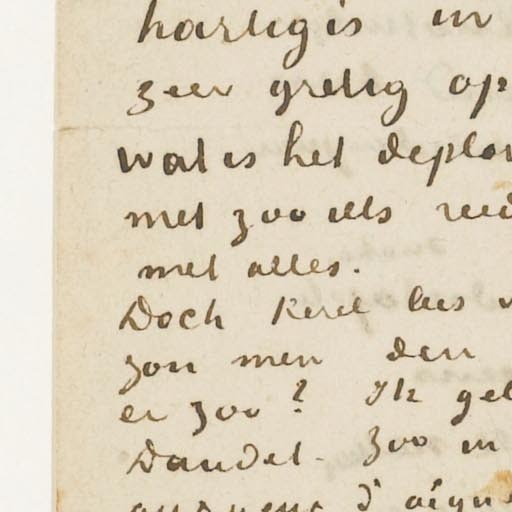 hartig is in
zeer gretig op
wat is het deplor
met zoo iets
met alles.
Doch kerel lees
zou men den
er zoo? Ik gel
Daudet. Zoo in
d'aigu